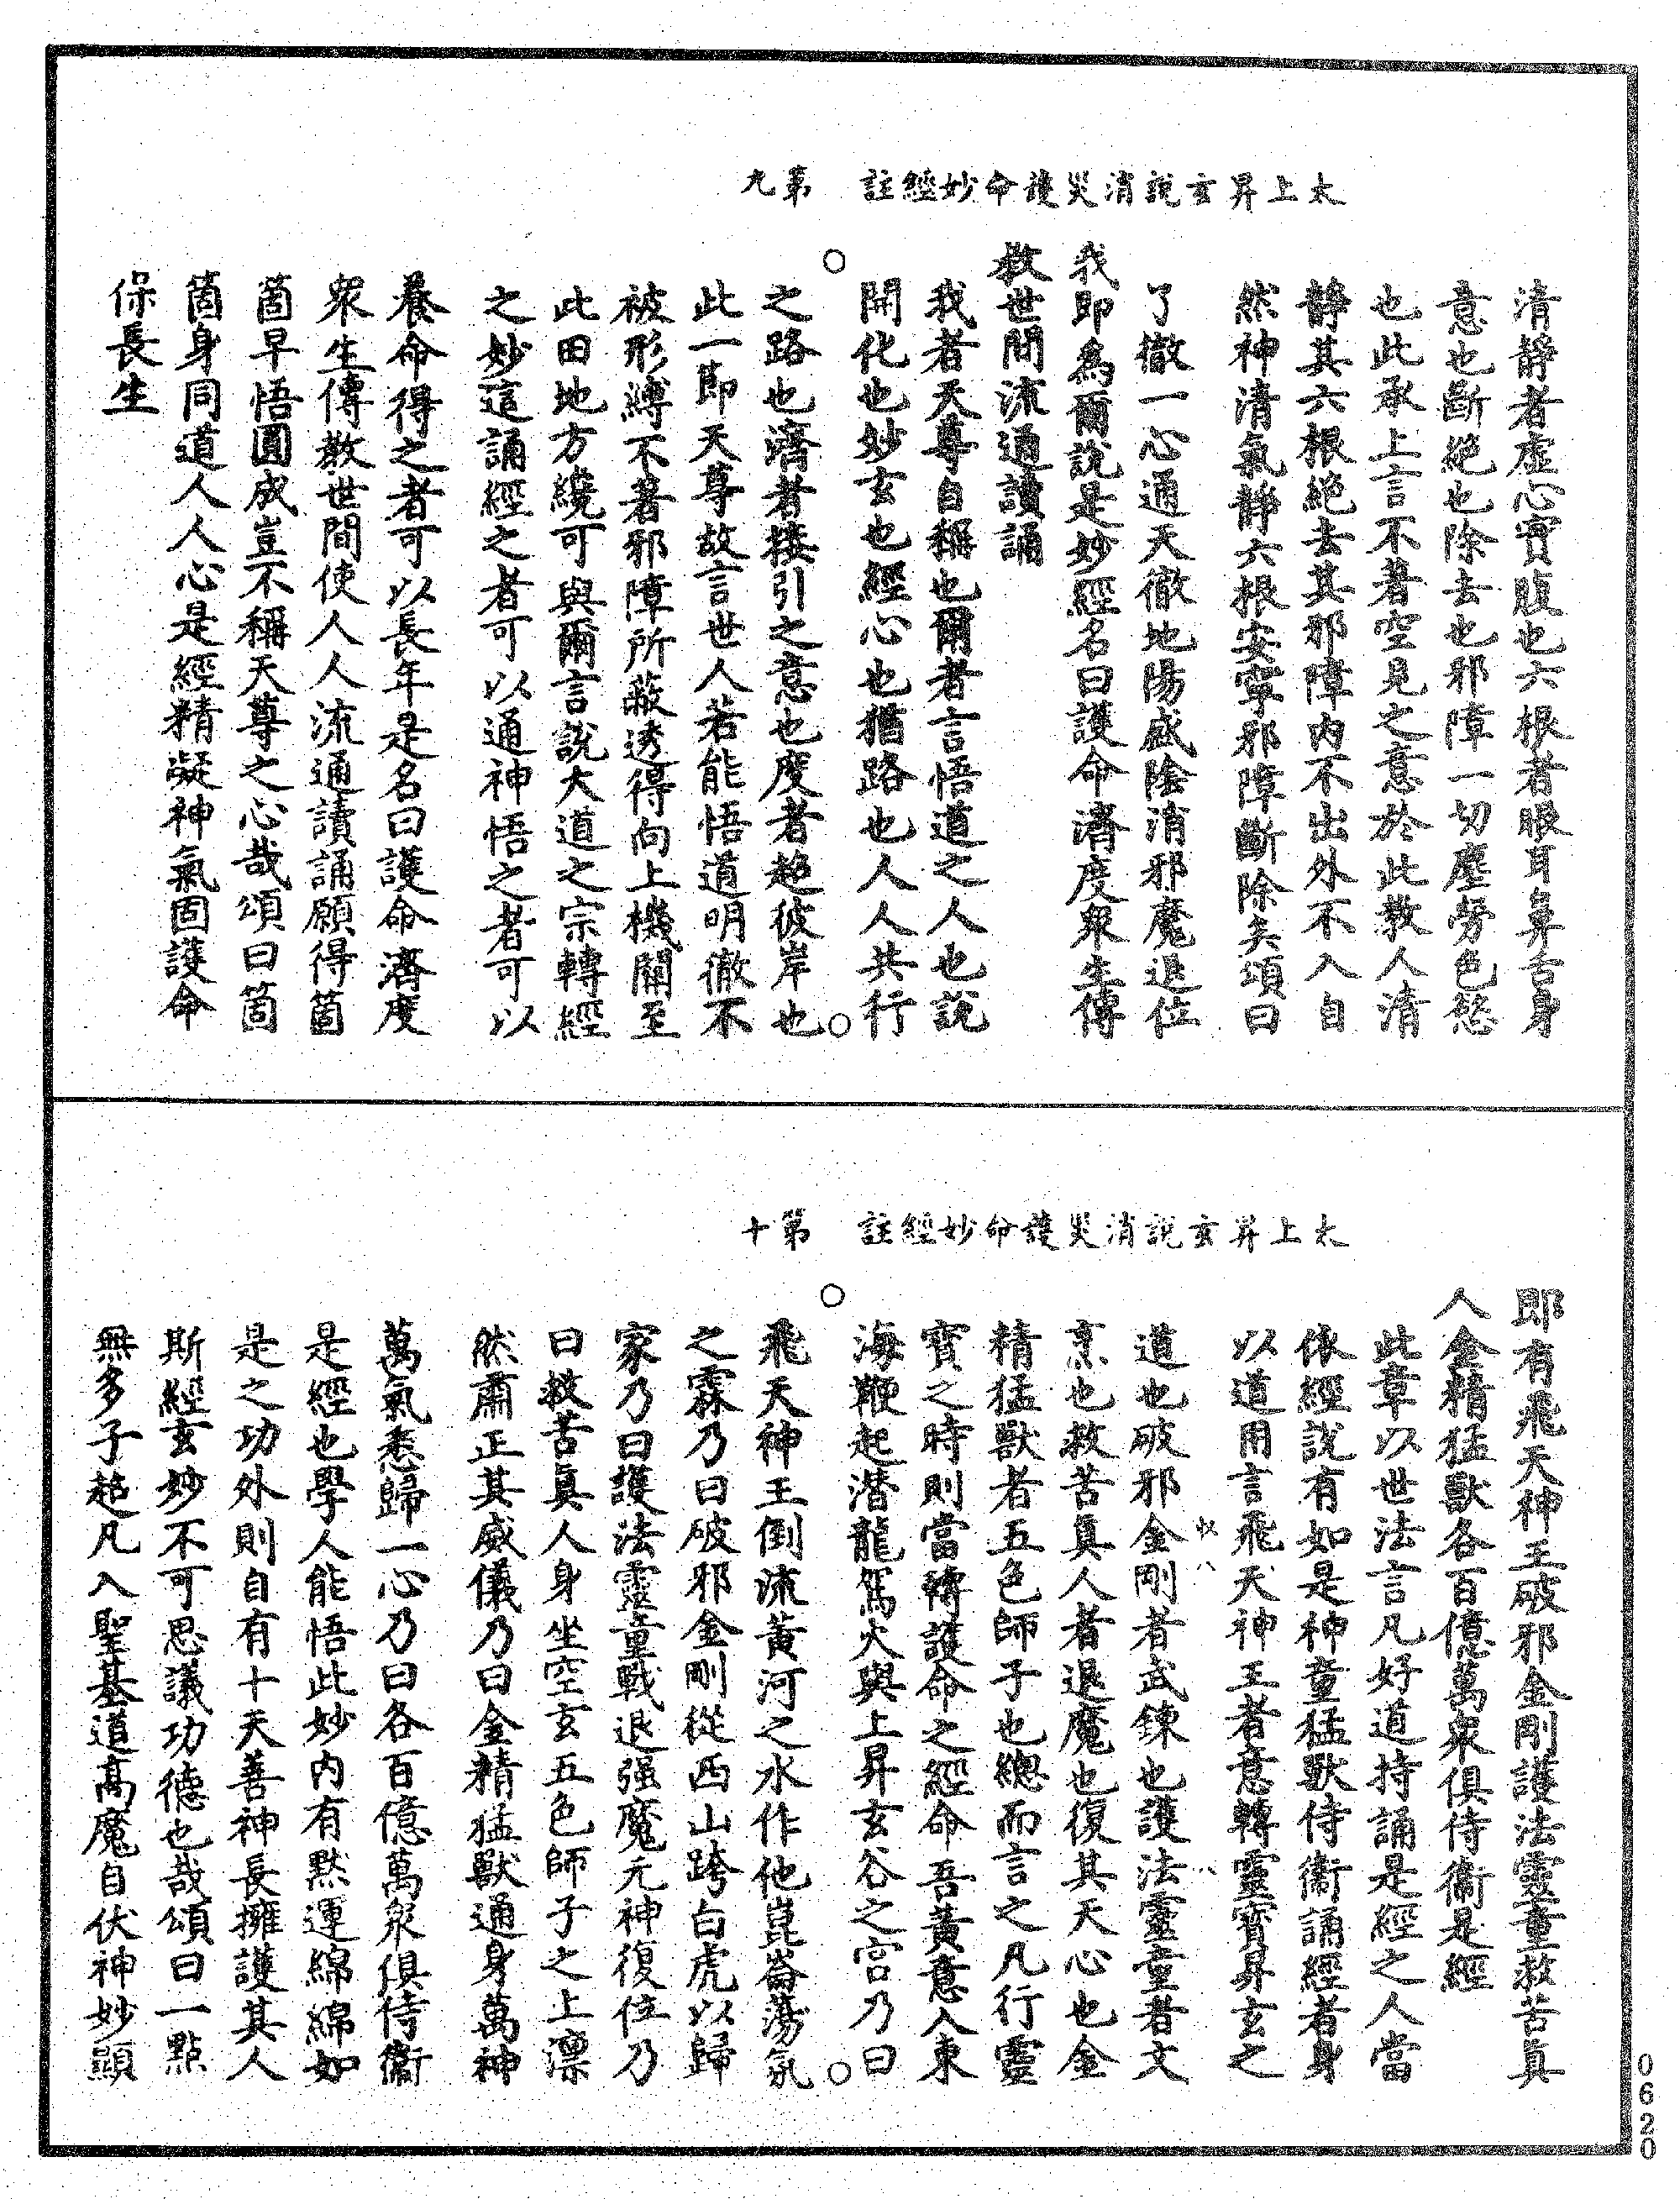 太上昇玄說消災護命妙經註　第九
清靜者虛心實腹也六根者眼耳鼻舌身
意也斷絕也除去也邪障一切塵勞色慾
也此承上言不著空見之意於此教人清
靜其六根絕去其邪障内不出外不入自
然神清氣靜六根安寧邪障斷除矣頌曰
了徹一心通天徹地陽盛陰消邪魔退位
我即爲爾說是妙經名曰護命濟度衆生傳
教世間流通讀誦
我者天尊自稱也爾者言悟道之人也說
開化也妙玄也經心也猶路也人人共行
之路也濟者接引之意也度者超彼岸也
此一即天尊故言世人若能悟道明徹不
被形縛不著邪障所蔽透得向上機關至
此田地方纔可與爾言說大道之宗轉經
之妙這誦經之者可以通神悟之者可以
養命得之者可以長年是名曰護命濟度
衆生傳教世間使人人流通讀誦願得箇
箇早悟圓成豈不稱天尊之心哉頌曰箇
箇身同道人人心是經精凝神氣固護命
保長生
太上昇玄說消災護命妙經註　第十
即有飛天神王破邪金剛護法靈童救苦眞
人金精猛獸各百億萬衆俱侍衞是經
此章以世法言凡好道持誦是經之人當
依經說有如是神童猛獸侍衞誦經者身
以道用言飛天神王者意轉靈寳昇玄之
道也破邪金剛者武鍊也護法靈童者文
烹也救苦眞人者退魔也復其天心也金
精猛獸者五色師子也總而言之凡行靈
寳之時則當轉護命之經命吾黃意入東
海鞭起潛龍駕火與上昇玄谷之宫乃曰
飛天神王倒流黃河之水作他崑崙蕩氛
之霖乃曰破邪金剛從西山跨白虎以歸
家乃曰護法靈童戰退强魔元神復位乃
曰救苦眞人身坐空玄五色師子之上凛
然肅正其威儀乃曰金精猛獸通身萬神
萬氣悉歸一心乃曰各百億萬衆俱侍衞
是經也學人能悟此妙内有默運綿綿如
是之功外則自有十天善神長擁護其人
斯經玄妙不可思議功德也哉頌曰一點
無多子超凡入聖基道高魔自伏神妙顯
0620